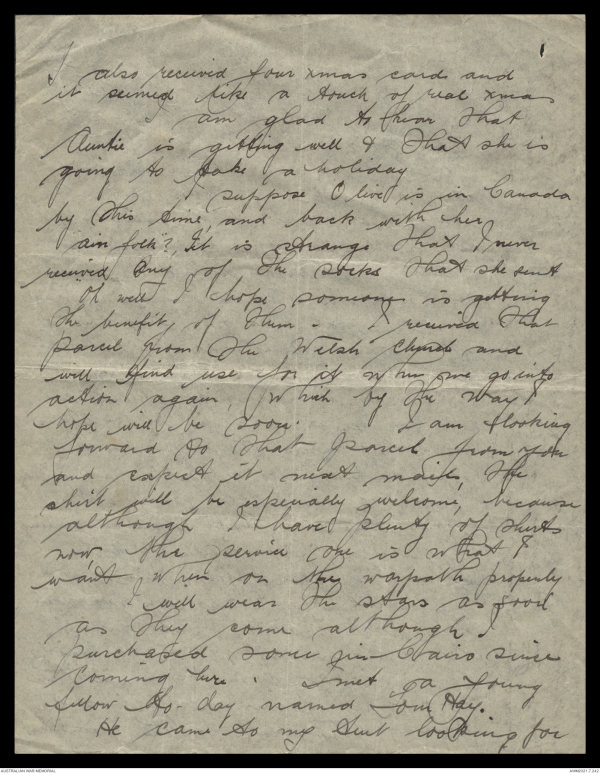 I also received four xmas cards and
it seemed like a touch of real xmas
I am glad to hear that
Auntie is getting well & that she is
going to take a holiday
I suppose Olive is in Canada
by this time, and back with her
"ain folk"? It is strange that I never
received any of the socks that she sent
Oh well I hope someone is getting
the benefit of them. I received that
parcel from the Welsh Church and
will find use for it when we go into
action again, which by the way I
hope will be soon. I am looking
forward to that parcel from you
and expect it next mail, the
shirt will be especially welcome, because
although I have plenty of shirts
now, the service one is what I
want when on the warpath properly
I will wear the stars as good
as they come although I
purchased some in Cairo since
coming here. I met a young
fellow to-day named Tom Hay.
He came to my tent looking for
AUSTRALIAN WAR MEMORIAL